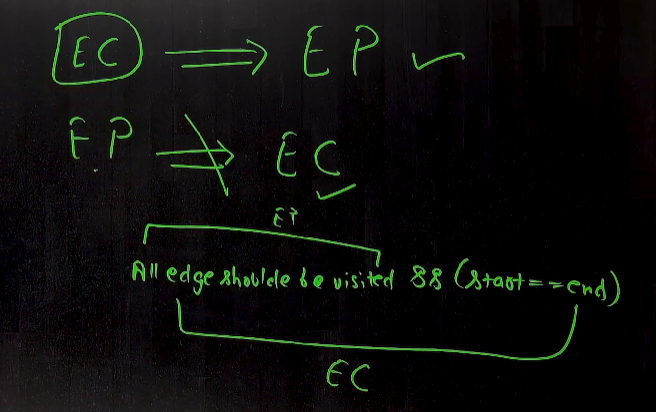 EC ⟹ EP ✓
EP ⇏ EC ✓
EP
All edge shoulde be visited && (start==end)
EC